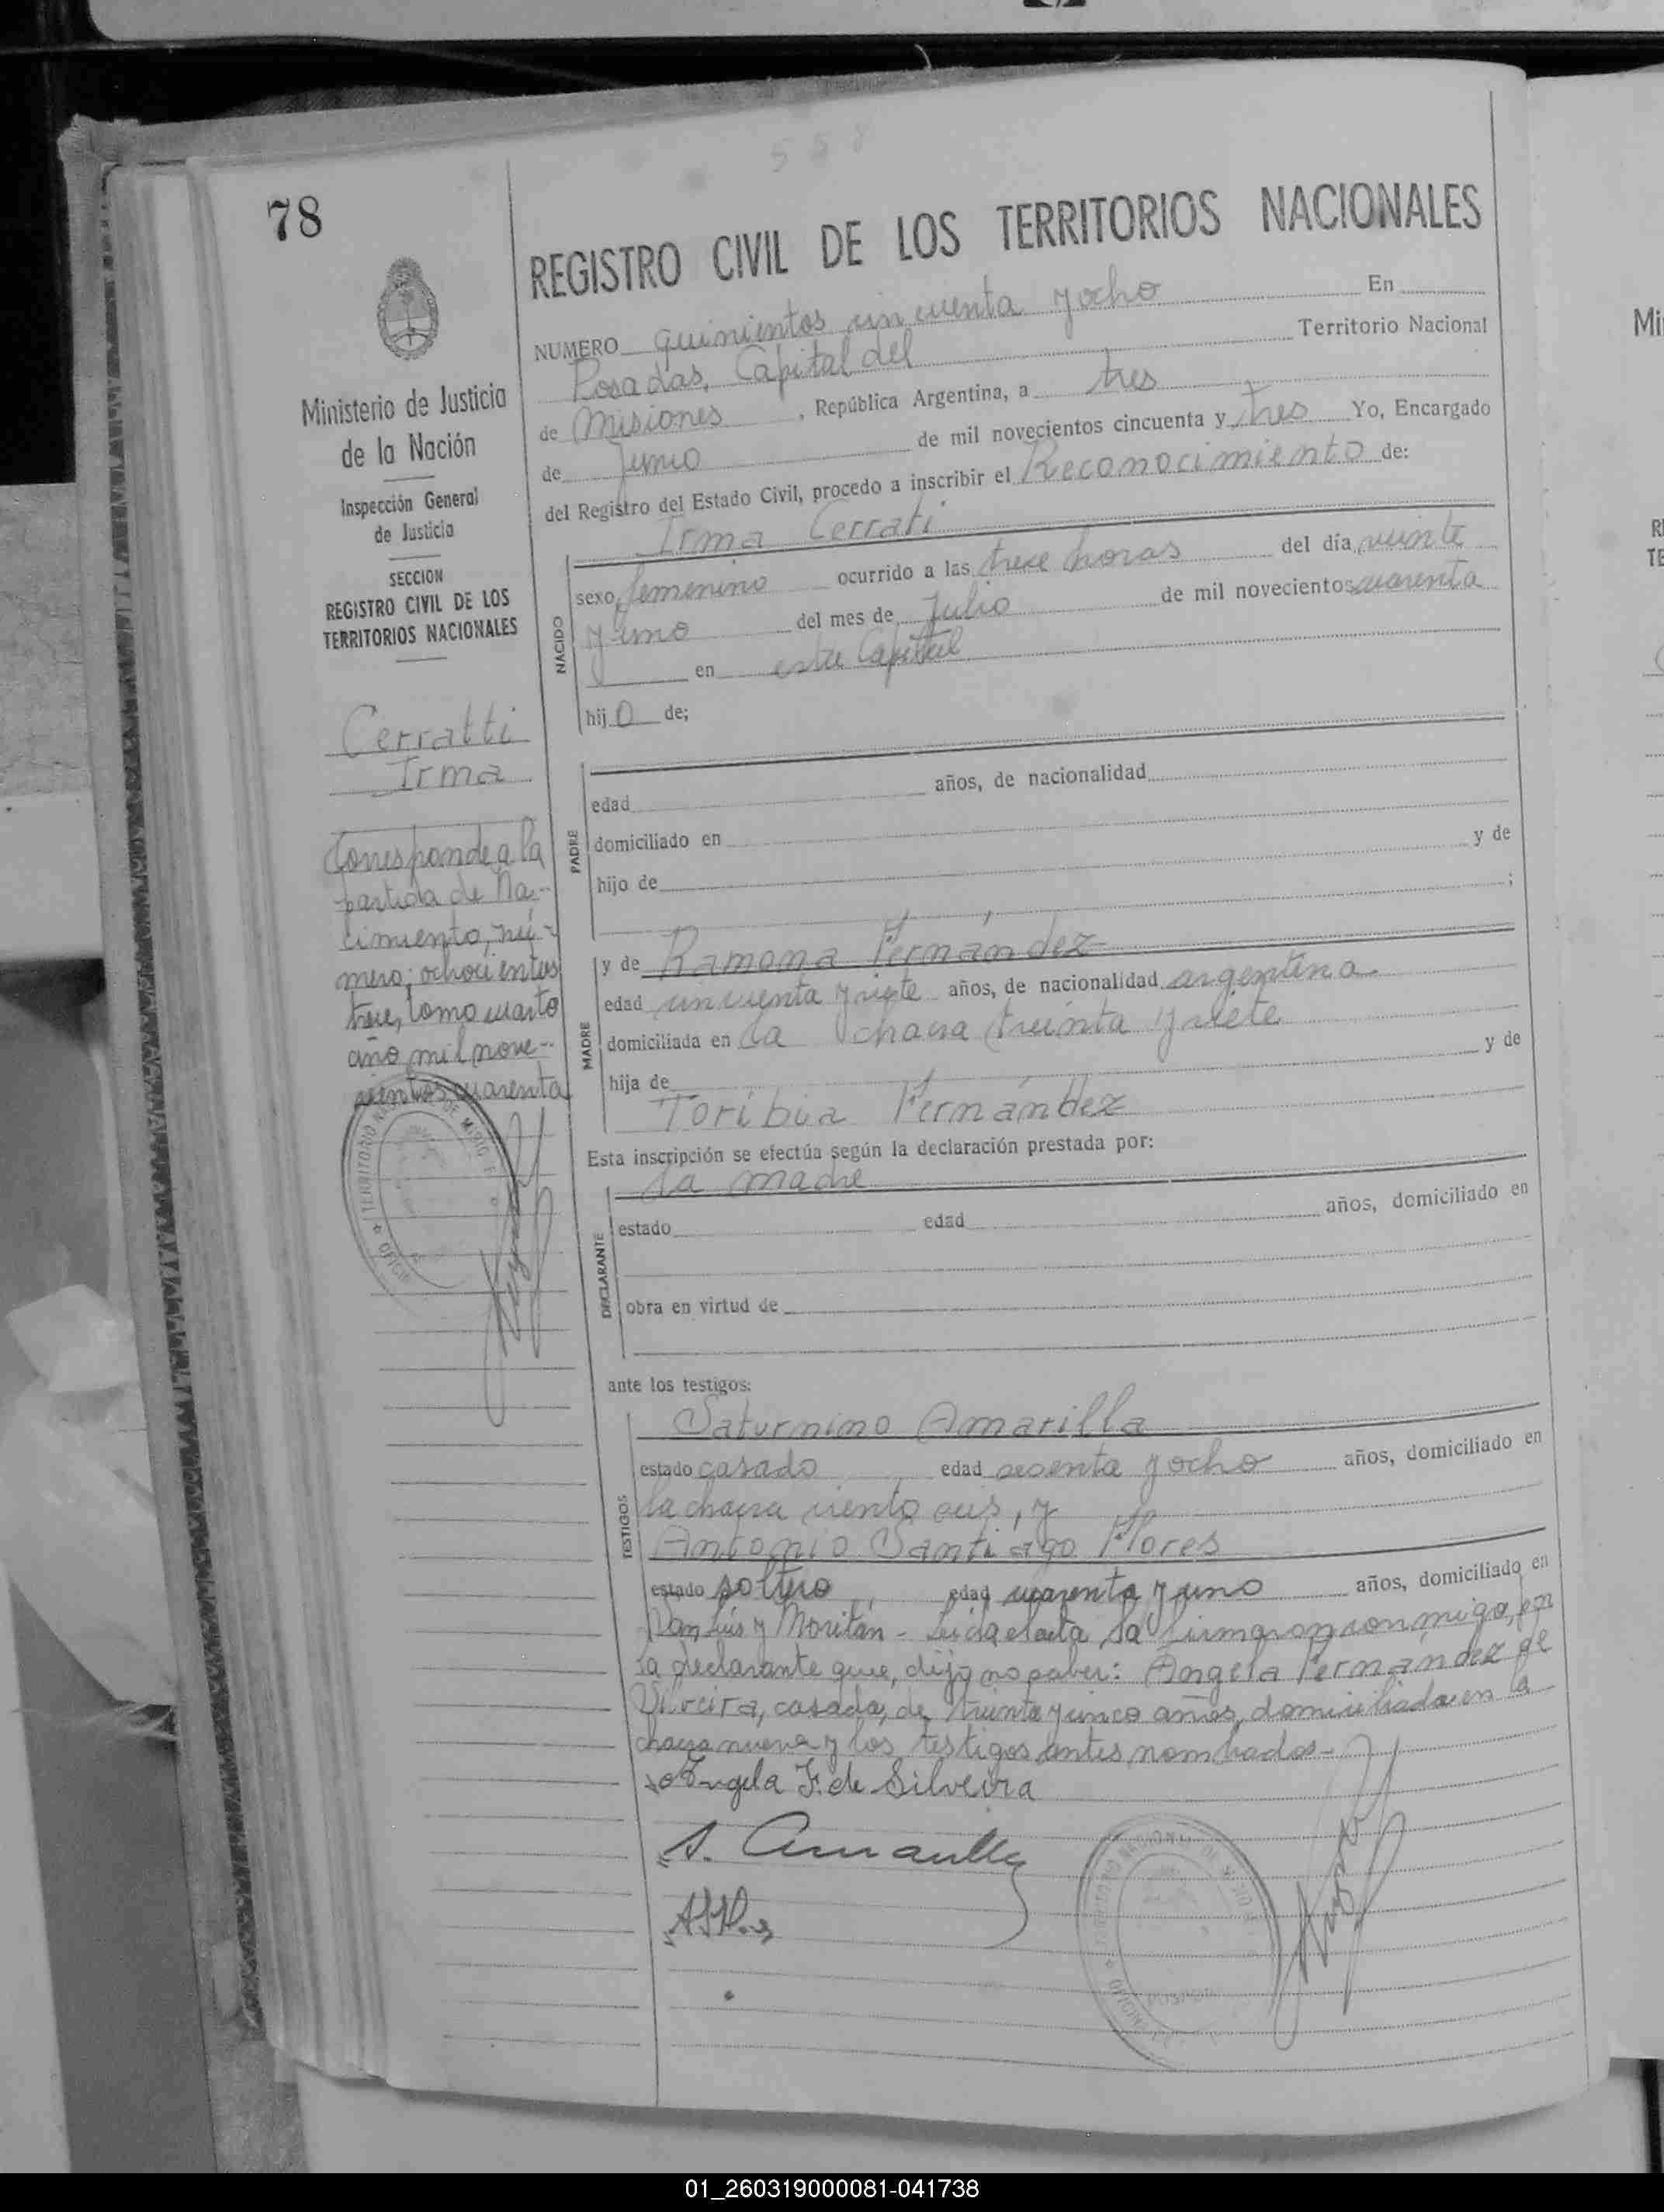 558
78
REGISTRO CIVIL DE LOS TERRITORIOS NACIONALES
Ministerio de Justicia
de la Nación
Inspección General
de Justicia
SECCION
REGISTRO CIVIL DE LOS
TERRITORIOS NACIONALES
Cerratti
Irma
Corresponde a la
partida de Na-
cimiento, nú-
mero; ochocientos
trece, tomo cuarto
año mil nove-
cientos cuarenta
NUMERO quinientos cincuenta y ocho En
Posadas, Capital del Territorio Nacional
de Misiones, República Argentina, a tres
de Junio de mil novecientos cincuenta y tres Yo, Encargado
del Registro del Estado Civil, procedo a inscribir el Reconocimiento de:
Irma Cerrati
NACIDO
sexo femenino ocurrido a las trece horas del día veinte
y uno del mes de Julio de mil novecientos cuarenta
en esta Capital
hij o de;
PADRE
edad años, de nacionalidad
domiciliado en
hijo de y de
;
MADRE
y de Ramona Fernández
edad cincuenta y siete años, de nacionalidad argentina
domiciliada en la chacra treinta y siete
hija de y de
Toribia Fernández
Esta inscripción se efectúa según la declaración prestada por:
la madre
DECLARANTE
estado edad años, domiciliado en
obra en virtud de
ante los testigos:
TESTIGOS
Saturnino Amarilla
estado casado edad sesenta y ocho años, domiciliado en
la chacra ciento seis, y
Antonio Santiago Flores
estado soltero edad cuarenta y uno años, domiciliado en
San Luis y Moritán - Leida el acta, la firmaron conmigo, por
la declarante que, dijo no saber: Angela Fernández de
Silveira, casada, de treinta y cinco años, domiciliada en la
chacra nueve y los testigos antes nombrados-
Angela F. de Silveira
S. Amarilla
01_260319000081-041738